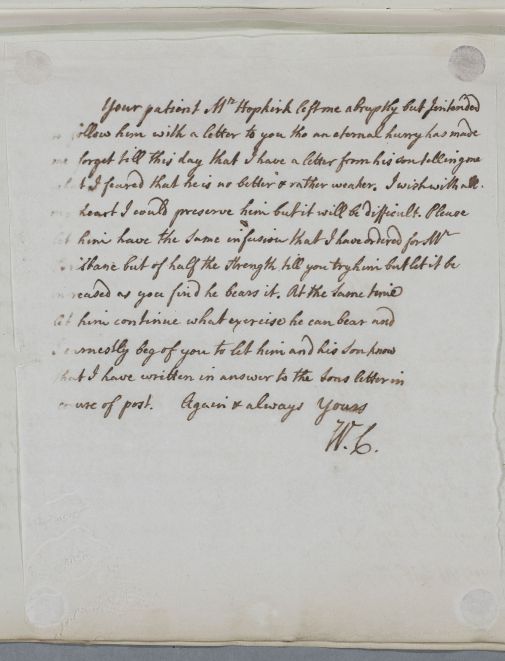 Your patient Mr Hopkirk left me abruptly but I intended
follow him with a letter to you tho an eternal hurry has made
me forget till this day that I have a letter from his son telling me
I feared that he is no better & rather weaker. I wish with all
my heart I could preserve him but it will be difficult. Please
let him have the same infusion that I have ordered for Mr
but of half the strength till you try him but let it be
increased as you find he bears it. At the same time
let him continue what exercise he can bear and
I earnestly beg of you to let him and his son know
that I have written in answer to the sons letter in
course of post. Again & always Yours
W. C.